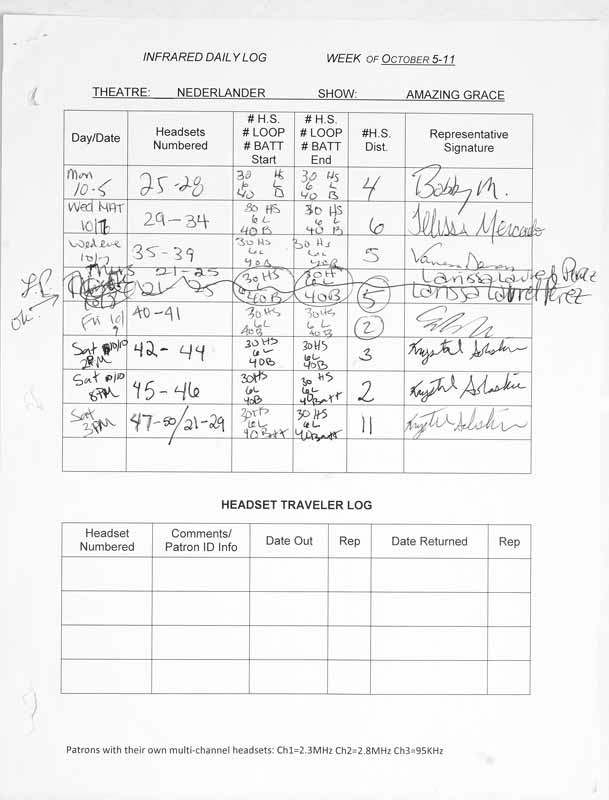 INFRARED DAILY LOG WEEK OF OCTOBER 5-11
THEATRE: NEDERLANDER SHOW: AMAZING GRACE
Day/Date Headsets Numbered # H.S. # LOOP # BATT Start # H.S. # LOOP # BATT End #H.S. Dist. Representative Signature
Mon 10-5 25-28 30 HS 6 L 40 B 30 HS 6 L 40 B 4 Bobby M.
Wed MAT 29-34 30 HS 6L 40B 30 HS 6 L 40 B 6 Mercado
Wed eve 35-39 30HS 6L 40B 30HS 6L 40B 5 Vanessa
Thurs 21-25 Larissa Laurel Perez
L.P. 21 25 30HS 6L 40B 30H 6L 40B 5 Larissa Laurel Perez
ok
Fri 10/9 40-41 30HS 6L 40B 30HS 6L 40B 2
Sat 10/10 2PM 42-44 30HS 6L 40B 30HS 6L 40B 3 Krystal
Sat 10/10 8PM 45-46 30HS 6L 40B 30 HS 6L 40Batt 2 Krystal
3PM 47-50/21-29 30HS 6L 40Batt 30 HS 6L 40Batt 11 Krystal
HEADSET TRAVELER LOG
Headset Numbered Comments/ Patron ID Info Date Out Rep Date Returned Rep
Patrons with their own multi-channel headsets: Ch1=2.3MHz Ch2=2.8MHz Ch3=95KHz